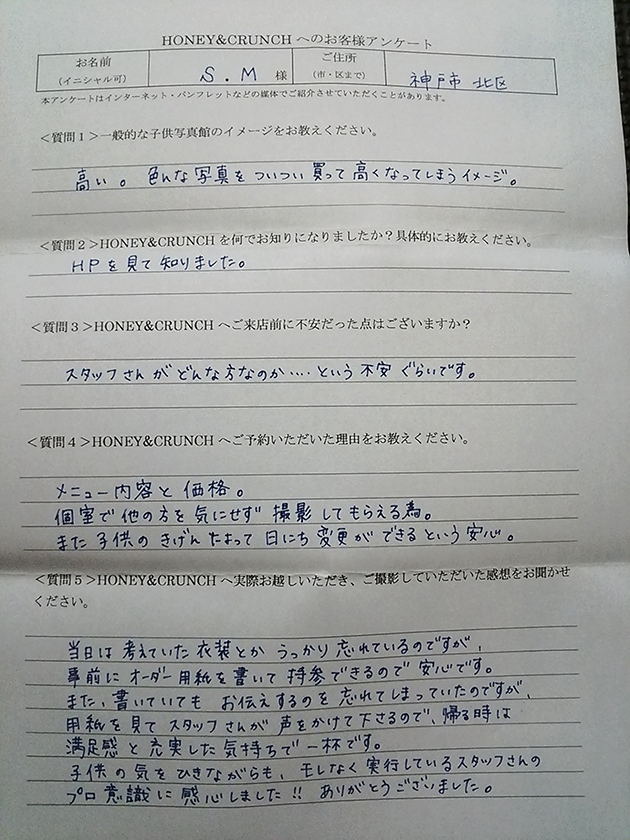 HONEY&CRUNCH へのお客様アンケート
お名前
(イニシャル可)
S.M 様
ご住所
(市・区まで)
神戸市 北区
本アンケートはインターネット・パンフレットなどの媒体でご紹介させていただくことがあります。
＜質問１＞一般的な子供写真館のイメージをお教えください。
高い。色んな写真をついつい買って高くなってしまうイメージ。
＜質問２＞HONEY&CRUNCH を何でお知りになりましたか？具体的にお教えください。
HPを見て知りました。
＜質問３＞HONEY&CRUNCH へご来店前に不安だった点はございますか？
スタッフさんがどんな方なのか‥‥という不安ぐらいです。
＜質問４＞HONEY&CRUNCH へご予約いただいた理由をお教えください。
メニュー内容と価格。
個室で他の方を気にせず撮影してもらえる為。
また子供のきげんによって日にち変更ができるという安心。
＜質問５＞HONEY&CRUNCH へ実際お越しいただき、ご撮影していただいた感想をお聞かせ
ください。
当日は考えていた衣装とかうっかり忘れているのですが、
事前にオーダー用紙を書いて持参できるので安心です。
また、書いていてもお伝えするのを忘れてしまっていたのですが、
用紙を見てスタッフさんが声をかけて下さるので、帰る時は
満足感と充実した気持ちで一杯です。
子供の気をひきながらも、モレなく実行しているスタッフさんの
プロ意識に感心しました!! ありがとうございました。